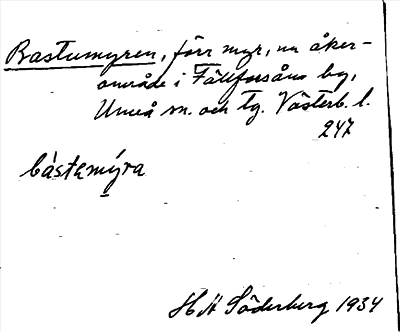 Bastumyren, förr myr, nu åker-
område i Fällforsåns by,
Umeå sn. och tg. Västerb. l.
247
bàstemýra
H A Söderberg 1934